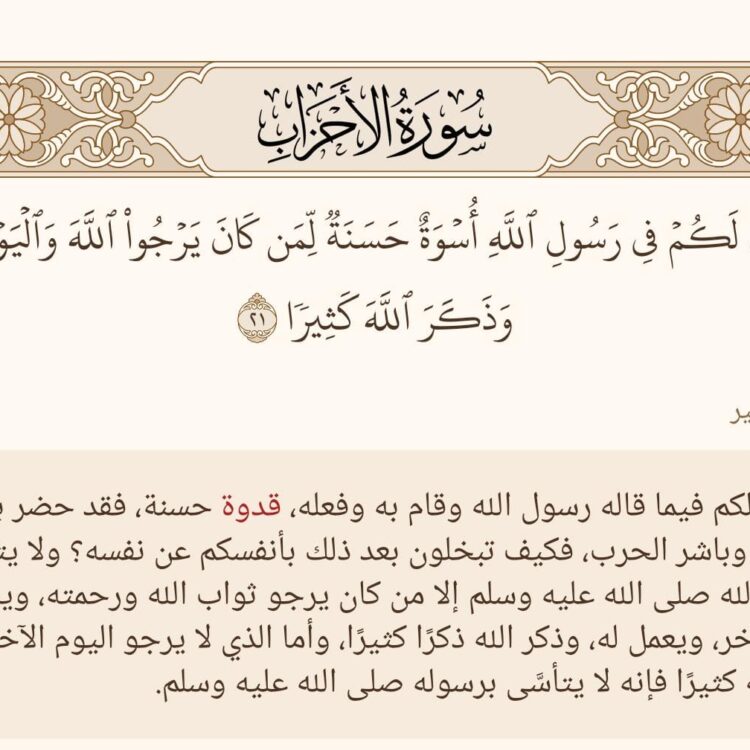 سُورَةُ الأَحْزَابِ
لَكُمۡ فِي رَسُولِ ٱللَّهِ أُسۡوَةٌ حَسَنَةٞ لِّمَن كَانَ يَرۡجُواْ ٱللَّهَ
وَذَكَرَ ٱللَّهَ كَثِيرٗا ٢١
فيما قاله رسول الله وقام به وفعله، قدوة حسنة، فقد حضر
وباشر الحرب، فكيف تبخلون بعد ذلك بأنفسكم عن نفسه؟ ولا
صلى الله عليه وسلم إلا من كان يرجو ثواب الله ورحمته،
ويعمل له، وذكر الله ذكرًا كثيرًا، وأما الذي لا يرجو اليوم
كثيرًا فإنه لا يتأسَّى برسوله صلى الله عليه وسلم.